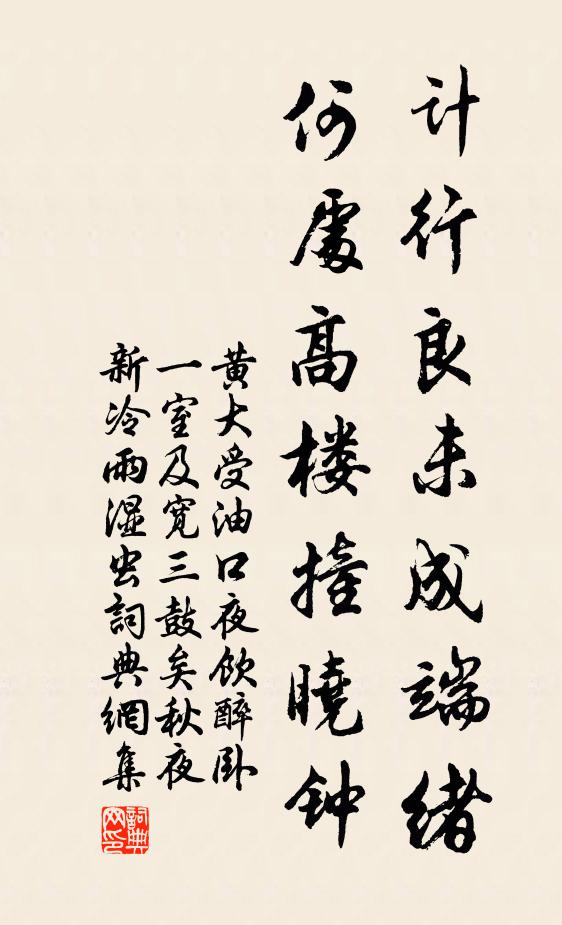 计行良未成端绪
何处高楼撞晓钟
黄大受油口夜饮醉卧
一室及宽三鼓矣秋夜
新冷雨湿虫詞典網集
詞典
网印